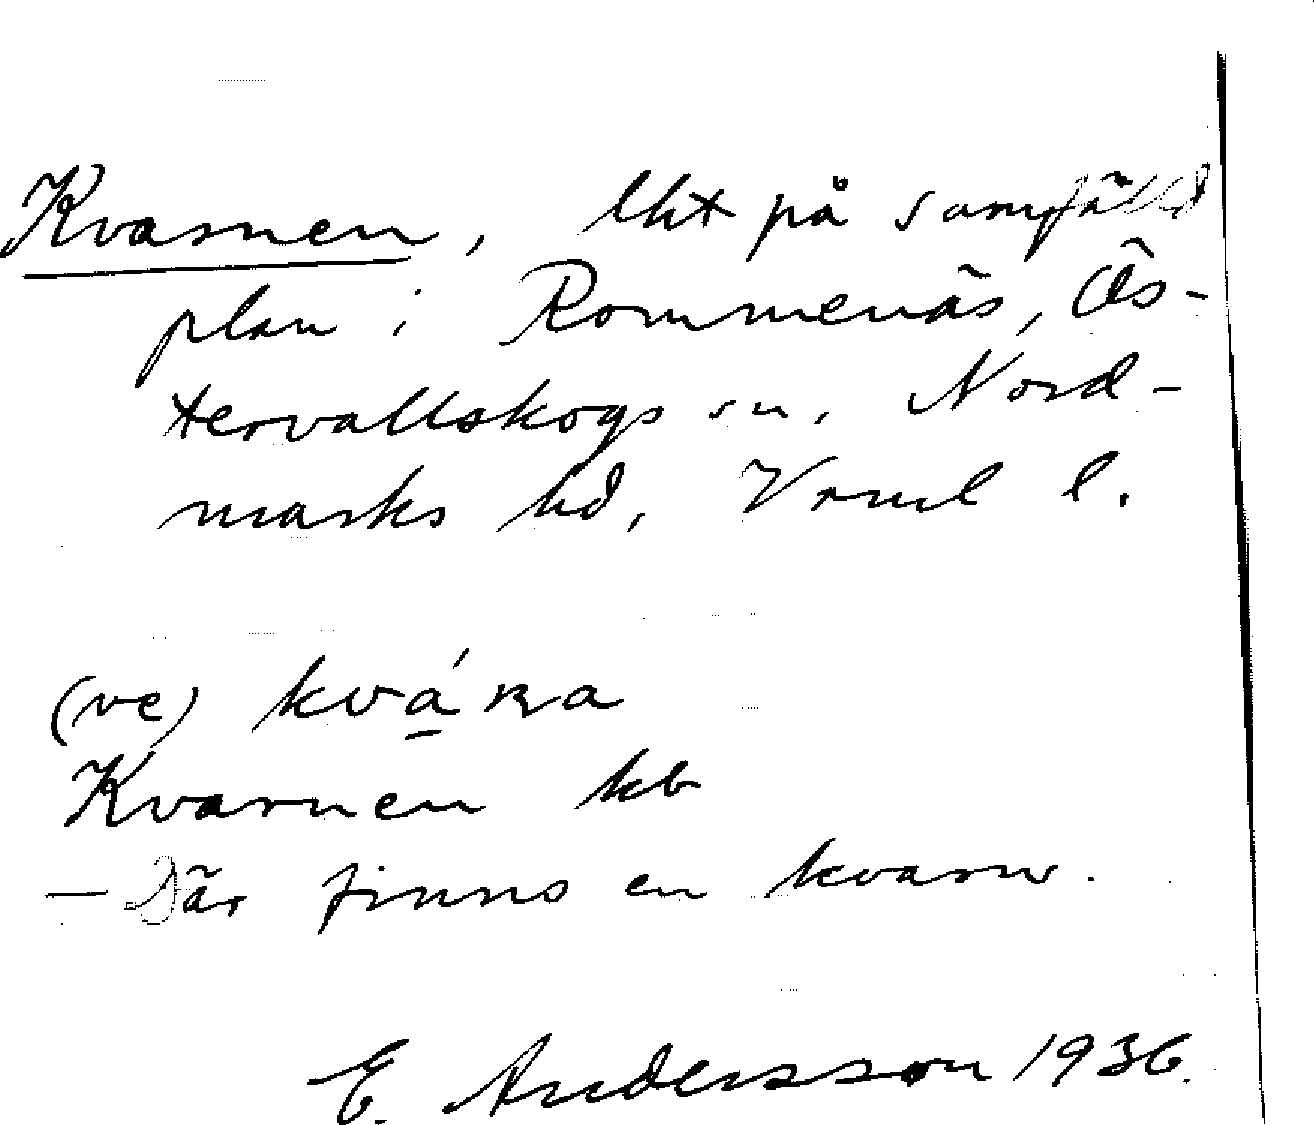 Kvarnen, lht på samfälld
plan i Rommenäs, Ös-
tervallskogs sn, Nord-
marks hd, Vrml l.
(ve) kvá̱ɴa
Kvarnen kb
— Där finns en kvarn.
E. Andersson 1936.